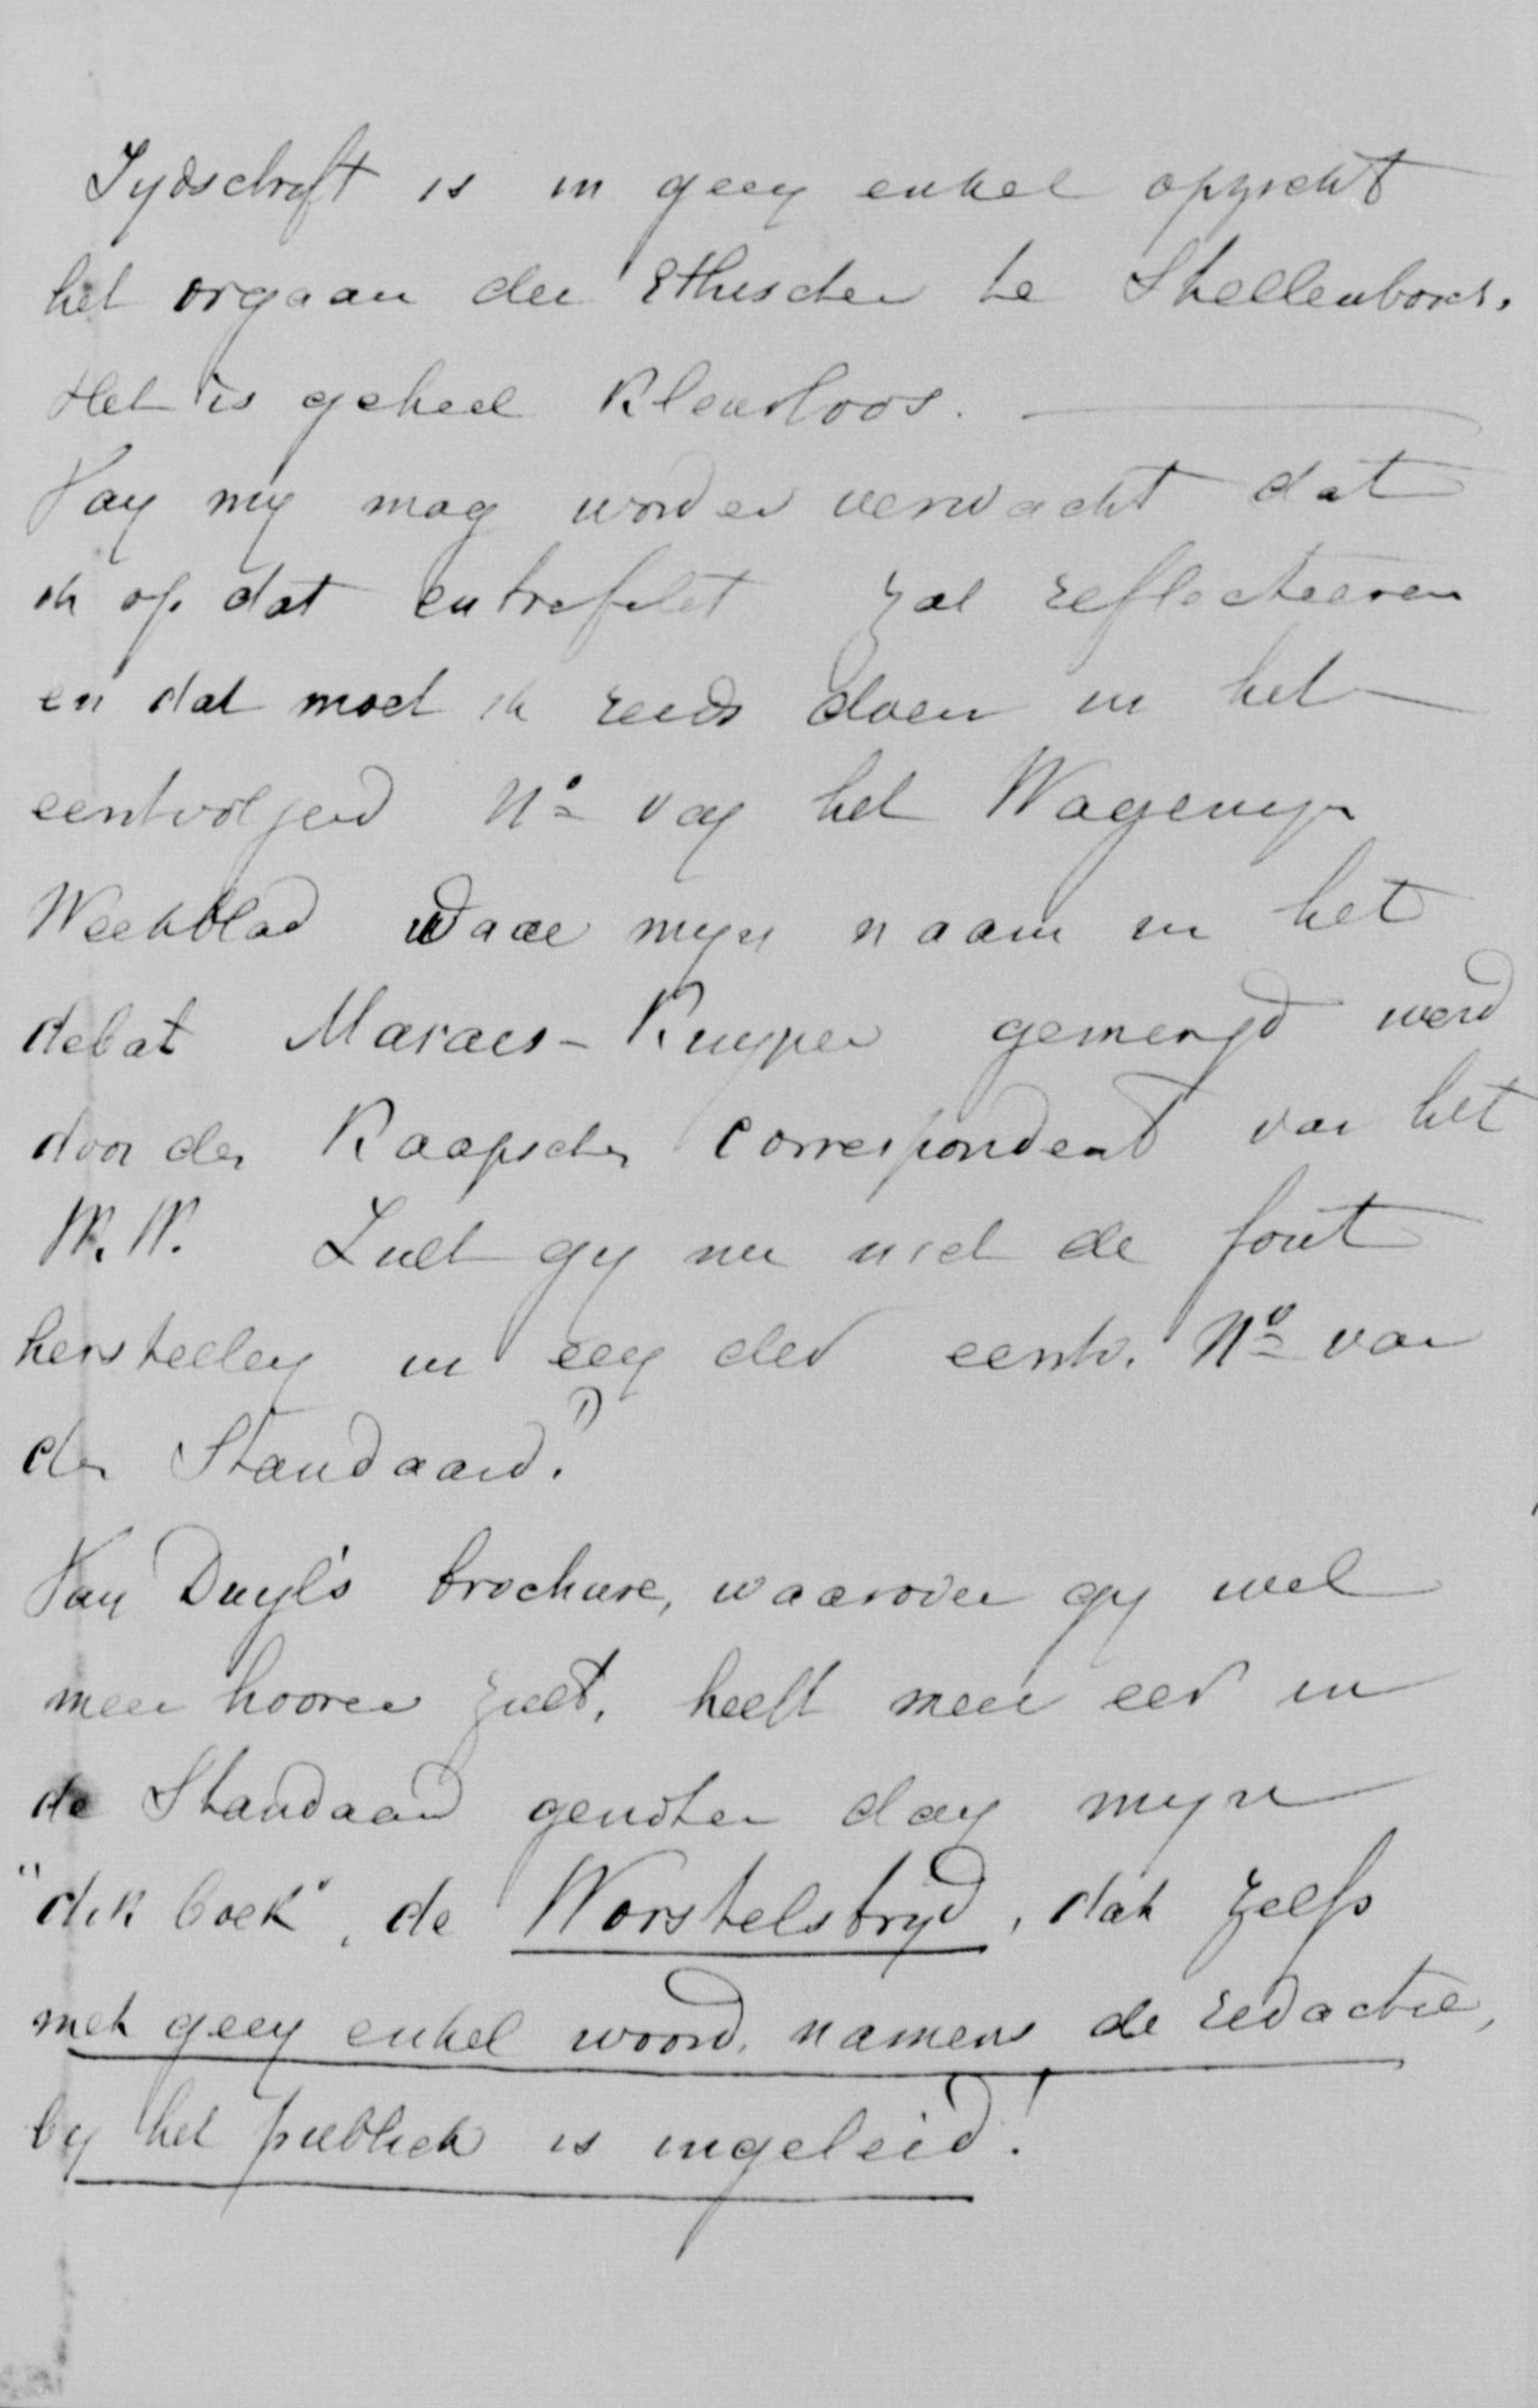 Tydschrift is in geen enkel opzicht
het orgaan der Ethischen te Stellenbosch.
Het is geheel kleurloos.
Van my mag worden verwacht dat
ik op dat entrefilet zal reflecteeren
en dat moet ik reeds doen in het
eerstvolgend No van het Wagenings
Weekblad waar myn naam in het
debat Marais-Kuyper gemengd werd
door den Kaapschen correspondent van het
W.W. Zult gy nu niet de fout
herstellen in een der eerstv. No van
den Standaard? 1)
Van Duyl's brochure, waarover gy wel
meer hooren zult, heeft meer eer in
de Standaard genoten dan myn
"dik boek", de Worstelstryd, dat zelfs
met geen enkel woord, namens de redactie,
by het publiek is ingeleid!